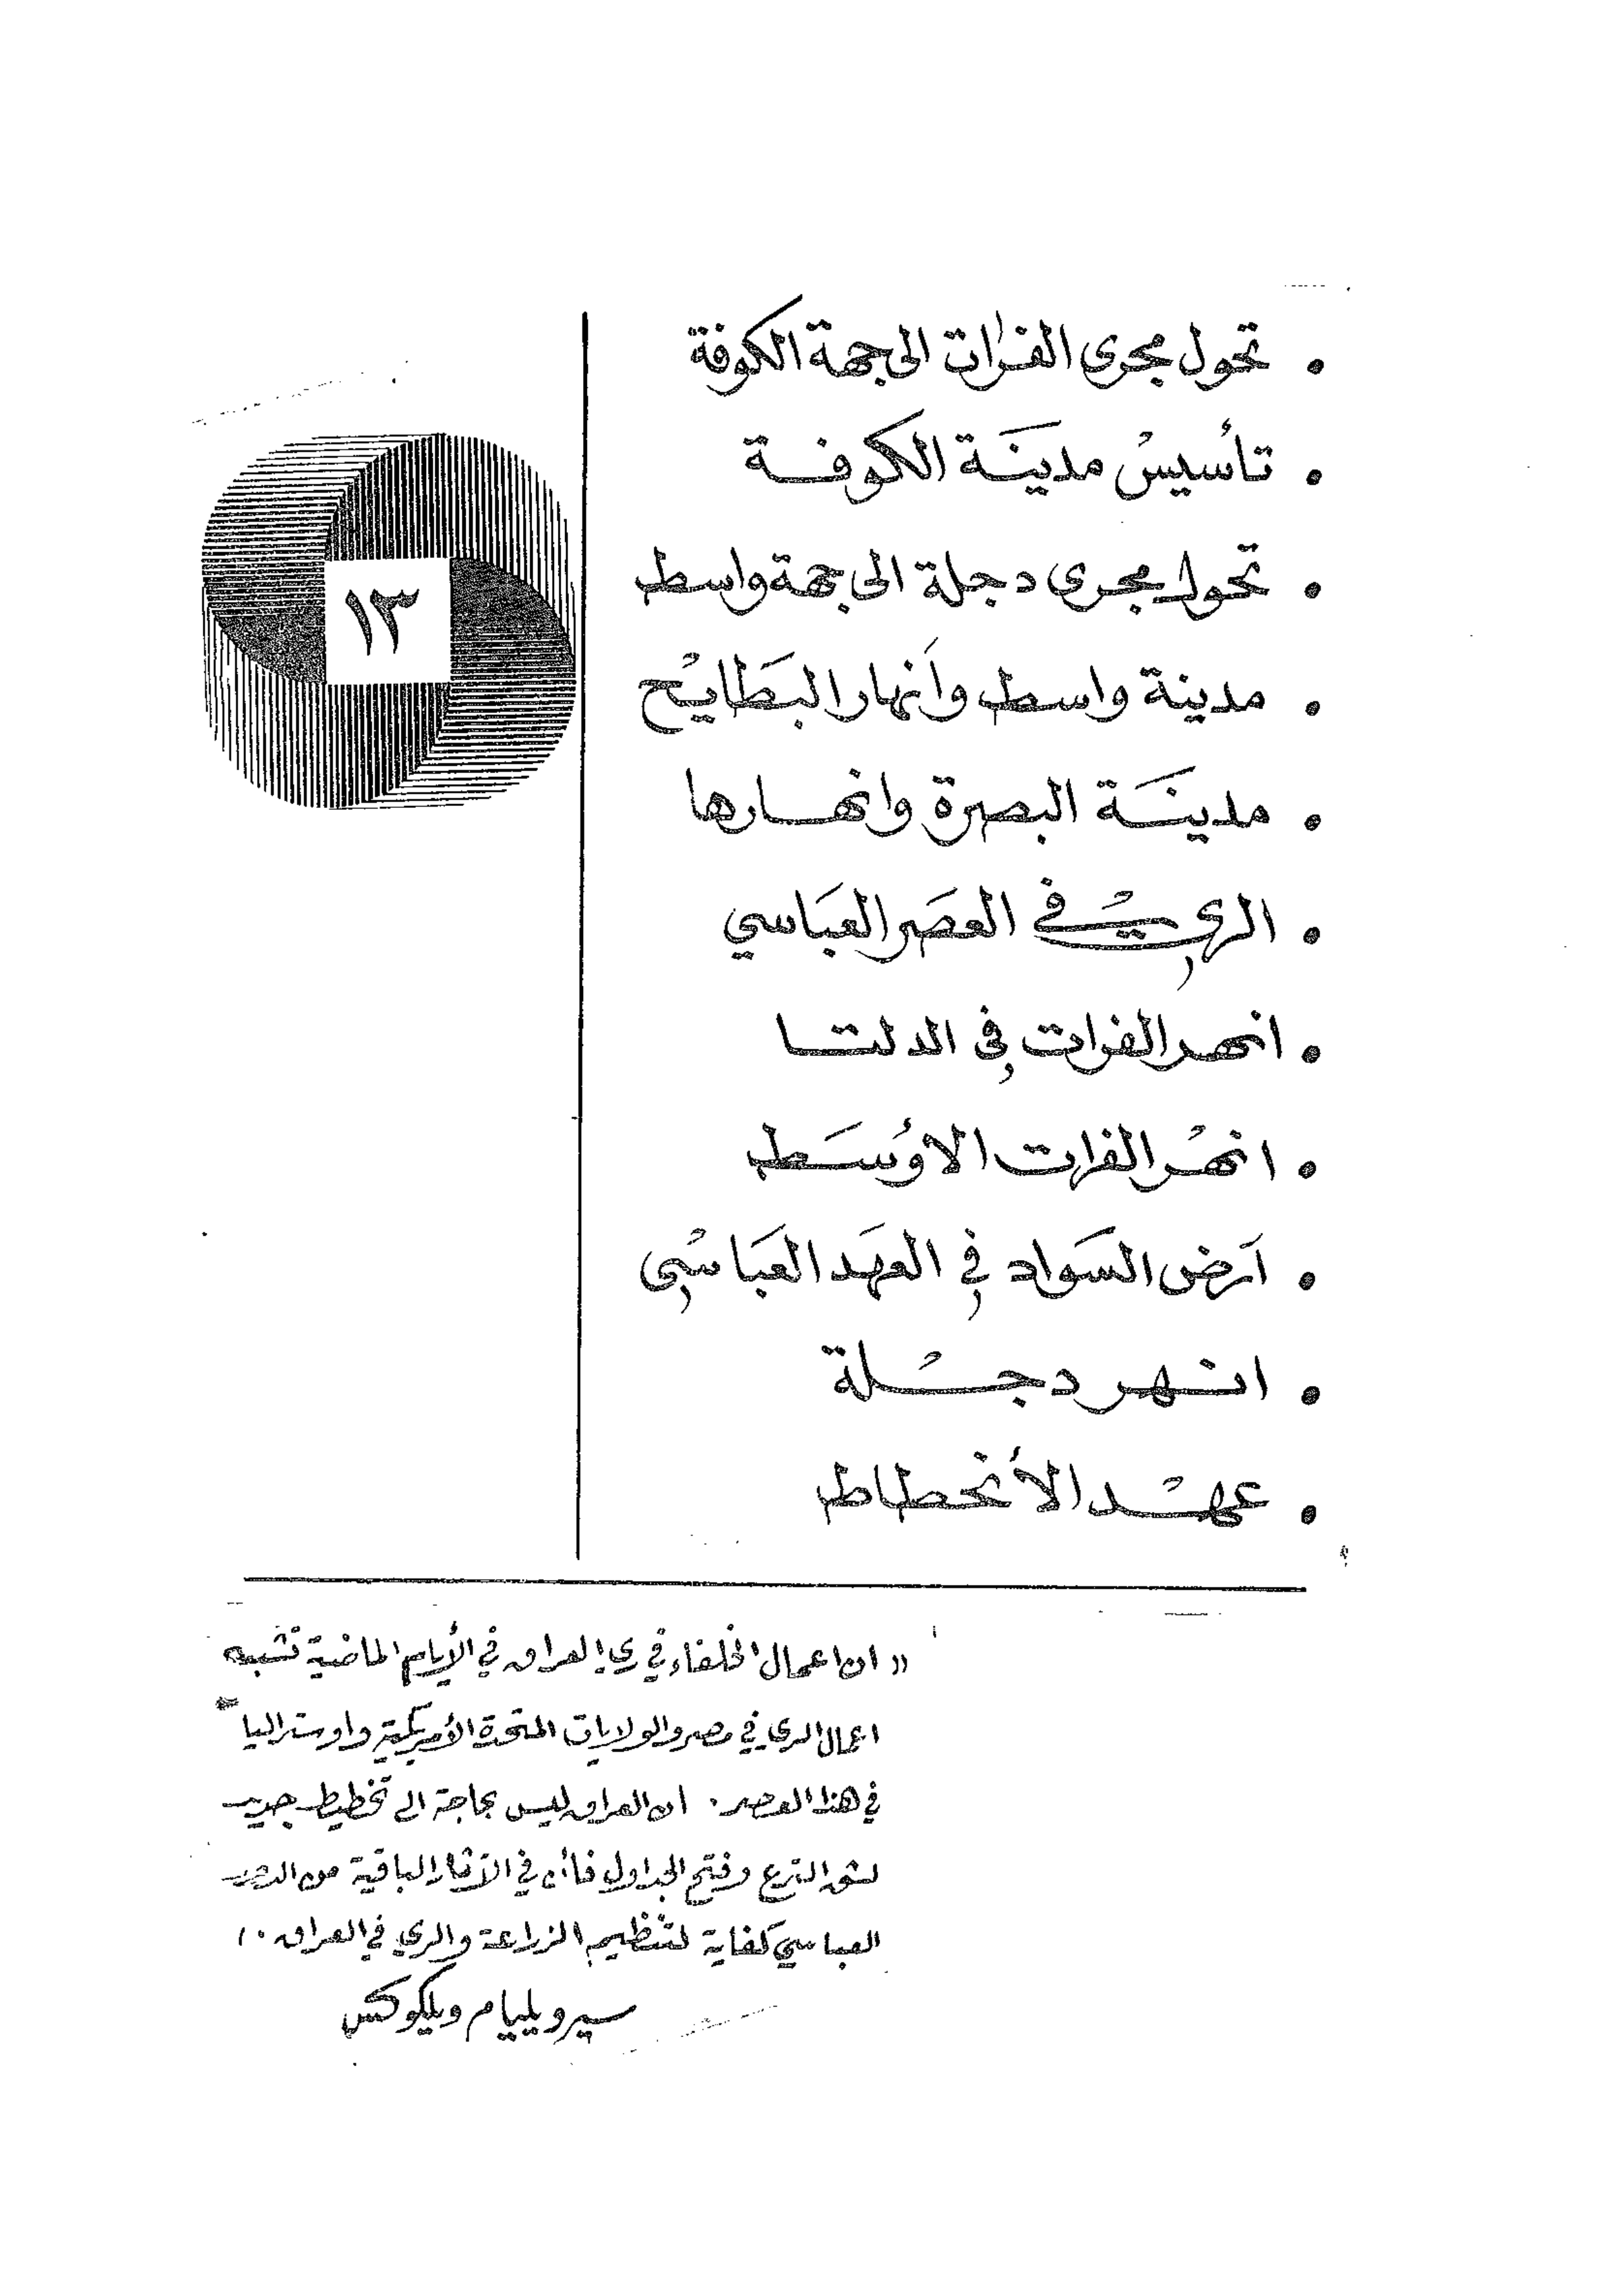 • تحول مجرى الفرات الى جهة الكوفة
• تأسيس مدينة الكوفة
• تحول مجرى دجلة الى جهة واسط
• مدينة واسط وأنهار البطايح
• مدينة البصرة وانهارها
• الري في العصر العباسي
• انهر الفرات في الدلتا
• انهر الفرات الاوسط
• أرض السواد في العهد العباسي
• انهر دجلة
• عهد الأنحطاط
١٣
« ان اعمال الخلفاء في ري العراق في الأيام الماضية تشبه
اعمال الري في مصر والولايات المتحدة الأمريكية واوستراليا
في هذا العصر. ان العراق ليس بحاجة الى تخطيط جديد
لشق الترع وفتح الجداول فأن في الآثار الباقية من
العباسي كفاية لتنظيم الزراعة والري في العراق . »
سير ويليام ويلكوكس